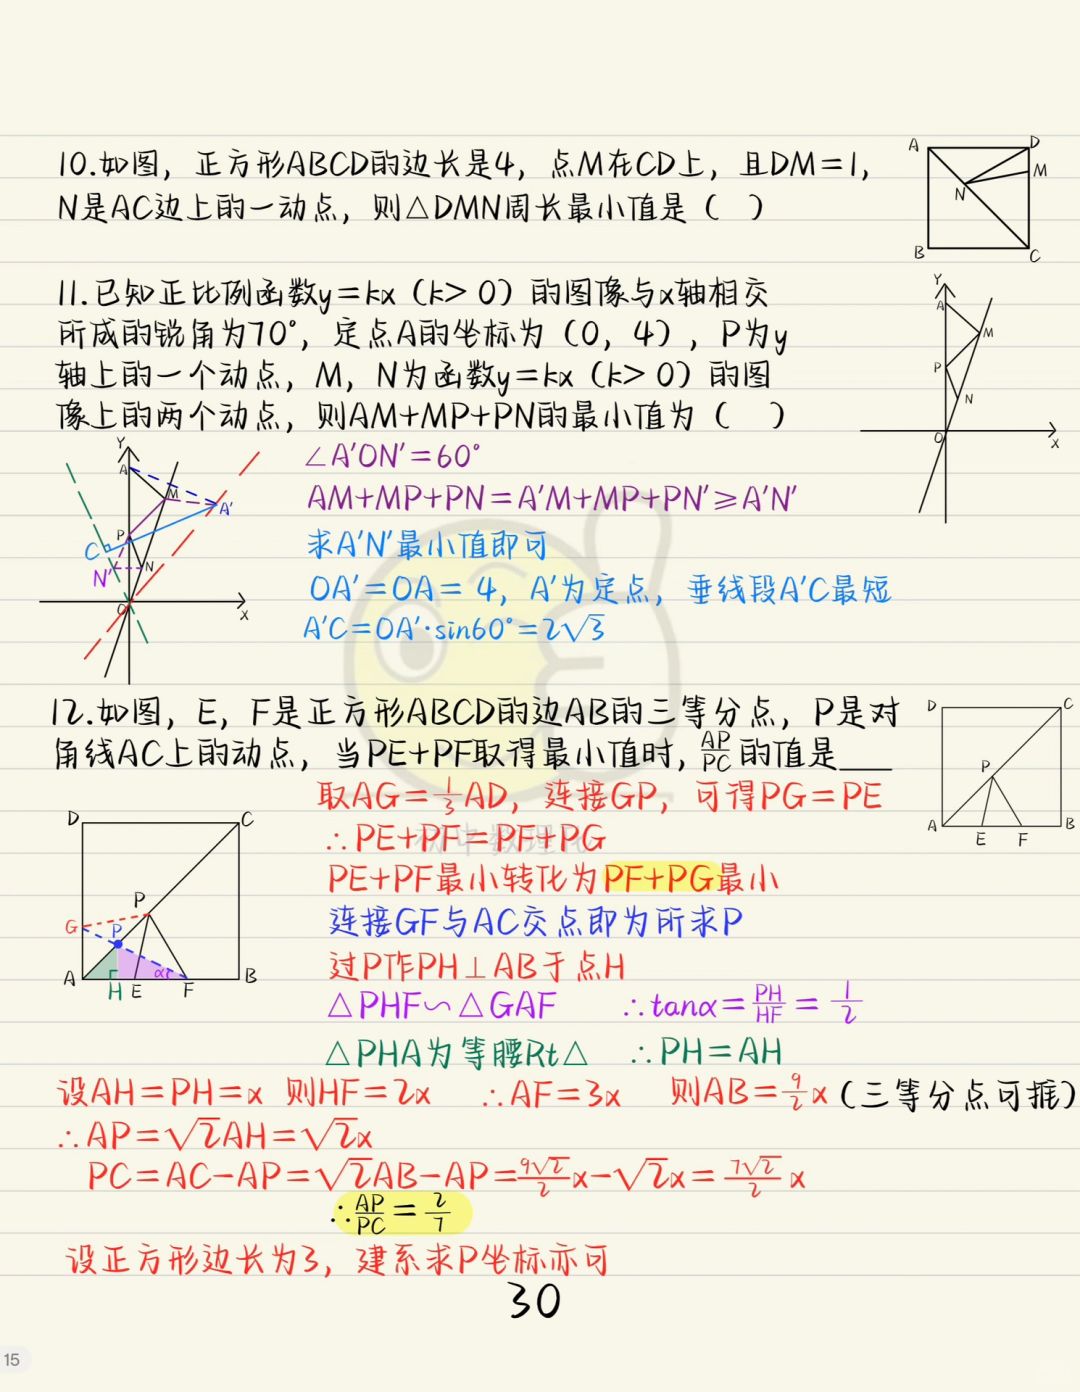 10.如图，正方形ABCD的边长是4，点M在CD上，且DM=1，
N是AC边上的一动点，则△DMN周长最小值是（ ）
A
D
M
N
B
C
11.已知正比例函数y=kx（k>0）的图像与x轴相交
所成的锐角为70°，定点A的坐标为（0，4），P为y
轴上的一个动点，M，N为函数y=kx（k>0）的图
像上的两个动点，则AM+MP+PN的最小值为（ ）
Y
A
M
P
N
O
X
Y
A
M
A'
P
C
N'
N
O
X
∠A'ON'=60°
AM+MP+PN=A'M+MP+PN'≥A'N'
求A'N'最小值即可
OA'=OA=4，A'为定点，垂线段A'C最短
A'C=OA'·sin60°=2√3
12.如图，E，F是正方形ABCD的边AB的三等分点，P是对
角线AC上的动点，当PE+PF取得最小值时，AP/PC的值是___
D
C
P
A
E
F
B
D
C
P
G
P
A
H
E
α
F
B
取AG=1/3AD，连接GP，可得PG=PE
∴PE+PF=PF+PG
初中数理化
PE+PF最小转化为PF+PG最小
连接GF与AC交点即为所求P
过P作PH⊥AB于点H
△PHF∽△GAF ∴tanα=PH/HF=1/2
△PHA为等腰Rt△ ∴PH=AH
设AH=PH=x 则HF=2x ∴AF=3x 则AB=9/2x（三等分点可推）
∴AP=√2AH=√2x
PC=AC-AP=√2AB-AP=9√2/2x-√2x=7√2/2x
∴AP/PC=2/7
设正方形边长为3，建系求P坐标亦可
30
15